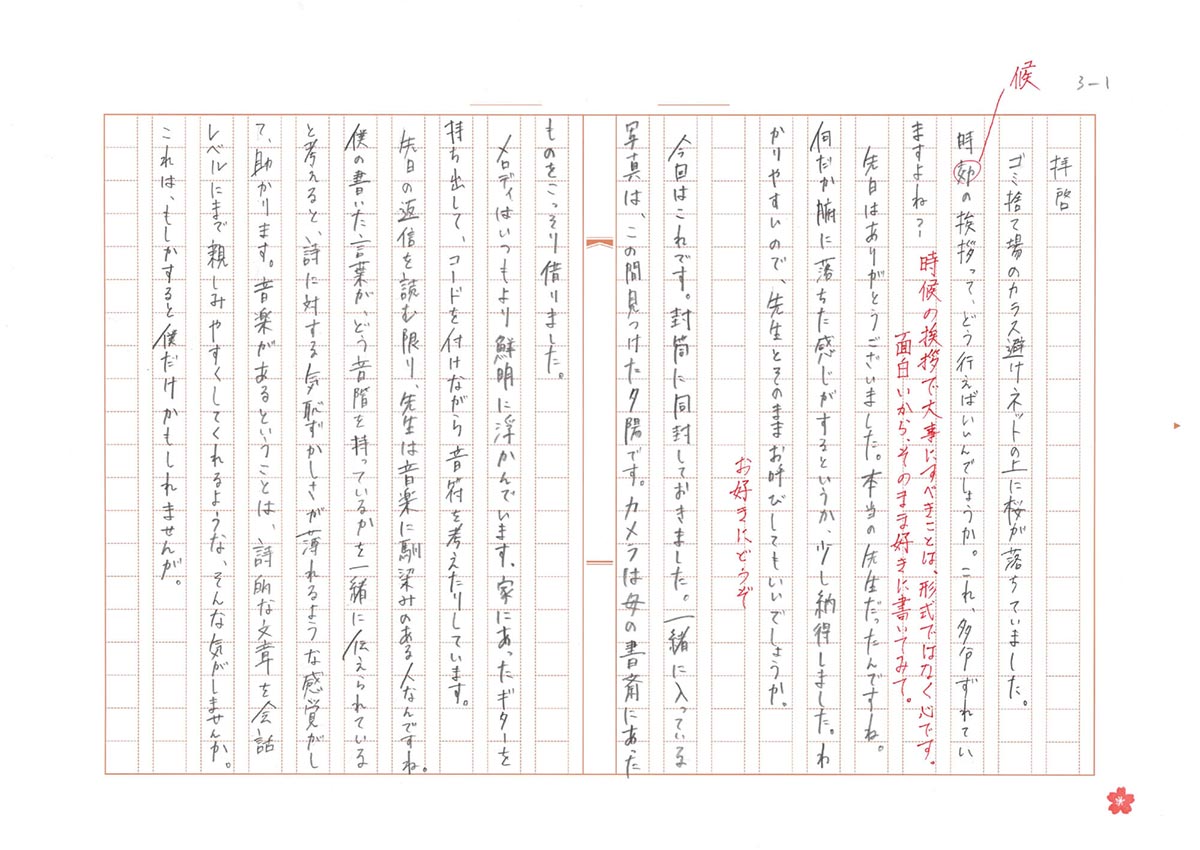 3-1
候
拝啓
ゴミ捨て場のカラス避けネットの上に桜が落ちていました。
時効の挨拶って、どう行えばいいんでしょうか。これ、多分ずれてい
ますよね？
時候の挨拶で大事にすべきことは、形式ではなく心です。
面白いから、そのまま好きに書いてみて。
先日はありがとうございました。本当の先生だったんですね。
何だか腑に落ちた感じがするというか、少し納得しました。わ
かりやすいので、先生とそのままお呼びしてもいいでしょうか。
お好きにどうぞ
今回はこれです。封筒に同封しておきました。一緒に入っている
写真は、この間見つけた夕陽です。カメラは母の書斎にあった
ものをこっそり借りました。
メロディはいつもより鮮明に浮かんでいます。家にあったギターを
持ち出して、コードを付けながら音符を考えたりしています。
先日の返信を読む限り、先生は音楽に馴染みのある人なんですね。
僕の書いた言葉が、どう音階を持っているかを一緒に伝えられている
と考えると、詩に対する気恥ずかしさが薄れるような感覚がし
て、助かります。音楽があるということは、詩的な文章を会話
レベルにまで親しみやすくしてくれるような、そんな気がしませんか。
これは、もしかすると僕だけかもしれませんが。